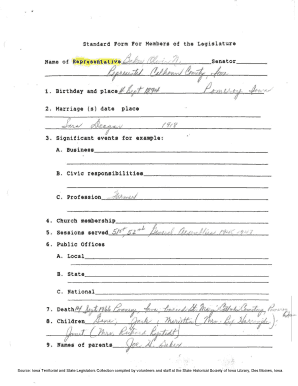 Standard Form For Members of the Legislature
Name of Representative Baker Senator
Represented Calhoun County, Iowa
1. Birthday and place Sept 1894 Pomeroy Iowa
2. Marriage (s) date place
1918
3. Significant events for example:
A. Business
B. Civic responsibilities
C. Profession Farmer
4. Church membership
5. Sessions served 51st, 52nd General Assemblies 1945, 1947
6. Public Offices
A. Local
B. State
C. National
7. Death Sept 1966 Pomeroy, Iowa, buried St. Mary Catholic Cemetery, Pomeroy
8. Children Jack, Marietta (Mrs.
Janet (Mrs. Richard
9. Names of parents Joe
Source: Iowa Territorial and State Legislators Collection compiled by volunteers and staff at the State Historical Society of Iowa Library, Des Moines, Iowa